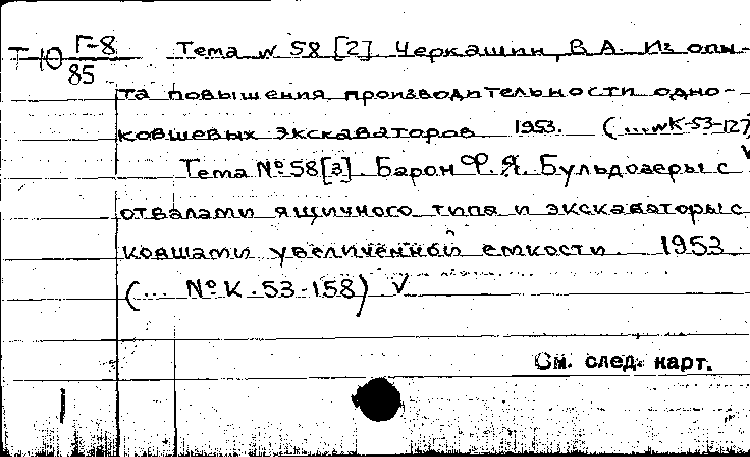 Т-10 Г-8/85 Тема № 58 [2] Черкашин, В А. Из опы-
та повышения производительности одно-
ковшевых экскаваторов 1953. (...№К-53-127)
Тема № 58 [3]. Барон Ф. Я. Бульдозеры с
отвалами ящичного типа и экскаваторы с
ковшами увеличенной емкости. 1953.
(... № К-53-158). V
См. след. карт.